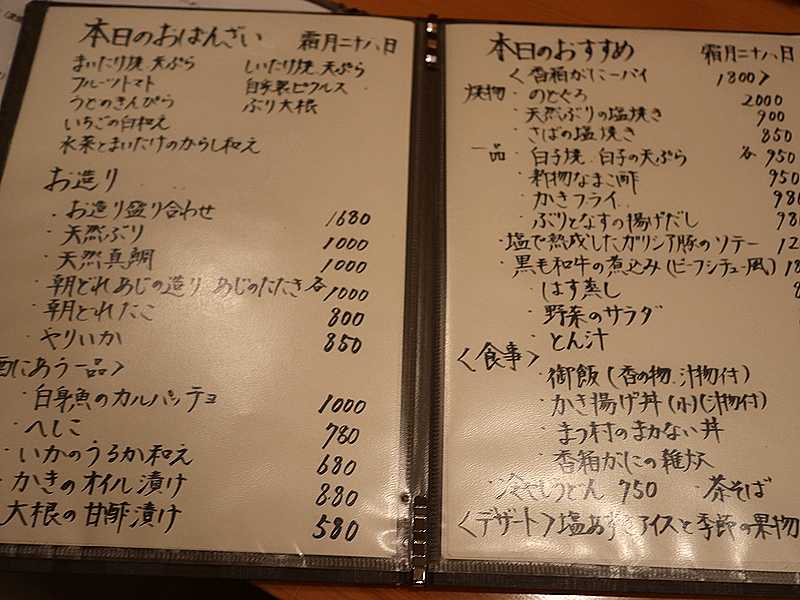 本日のおばんざい 霜月二十八日
まいたり焼、天ぷら しいたり焼、天ぷら
フルーツトマト 自家製ピクルス
うどのきんぴら ぶり大根
いちごの白和え
水菜とまいたけのからし和え
お造り
・お造り盛り合わせ 1680
・天然ぶり 1000
・天然真鯛 1000
・朝どれあじの造り、あじのたたき 各1000
・朝どれたこ 800
・ヤリいか 850
にあう一品〉
・白身魚のカルパッチョ 1000
・へしこ 780
・いかのうるか和え 680
・かきのオイル漬け 880
大根の甘酢漬け 580
本日のおすすめ 霜月二十八日
〈香箱がに一パイ 1800〉
焼物・のどぐろ 2000
・天然ぶりの塩焼き 900
・さばの塩焼き 850
一品・白子焼、白子の天ぷら 各950
・酢物なまこ酢 950
・かきフライ 98
・ぶりとなすの揚げだし 98
・塩で熟成したガリシア豚のソテー 12
・黒毛和牛の煮込み(ビーフシチュー風) 18
・はす蒸し 8
・野菜のサラダ
・とん汁
〈食事〉
・御飯(香の物、汁物付)
・かき揚げ丼(小)(汁物付)
・まつ村のまかない丼
・香箱がにの雑炊
・冷やしうどん 750 ・茶そば
〈デザート〉塩あずきアイスと季節の果物